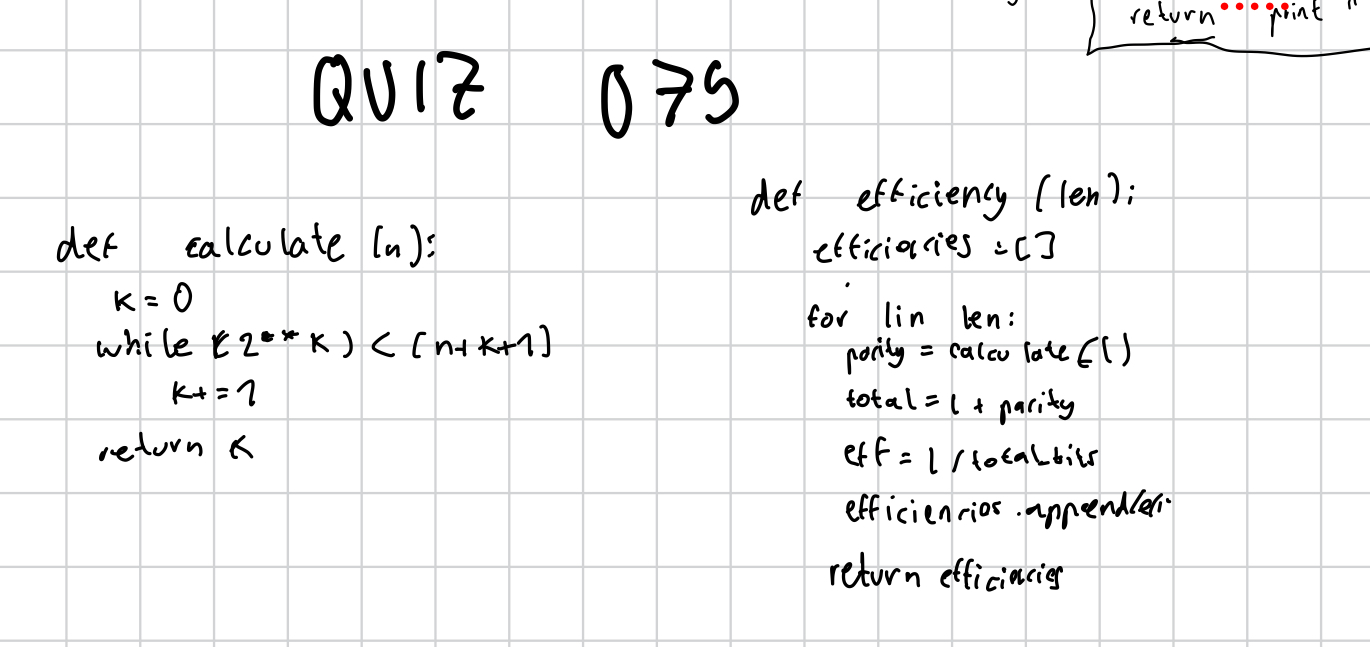 return print
QUIZ 079
def calculate (n):
k = 0
while (2** k) < (n+k+1)
k+=1
return k
def efficiency (len):
efficiacies = []
for l in len:
parity = calculate (l)
total = l + parity
eff = l / total_bits
return efficiacies